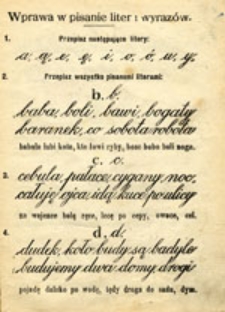 Wprawa w pisanie liter i wyrazów.
1. Przepisz następujące litery:
a, ą, e, ę, i, o, ó, u, y
2. Przepisz wszystko pisanemi literami:
b. b.
baba, boli, bawi, bogaty
baranek, co sobota robota
babula lubi kota, kto łowi ryby, baba boli noga.
c. c.
3. cebula, palące, cygany, noc,
całuję ojca, idą kuce po ulicy
na wojence balą ręce, lecę po cepy, owoce, cel.
d. d.
4. dudek, koło budy są badyle
budujemy dwa domy, drogi
pojadę daleko po wodę, tędy droga do sadu, dym.